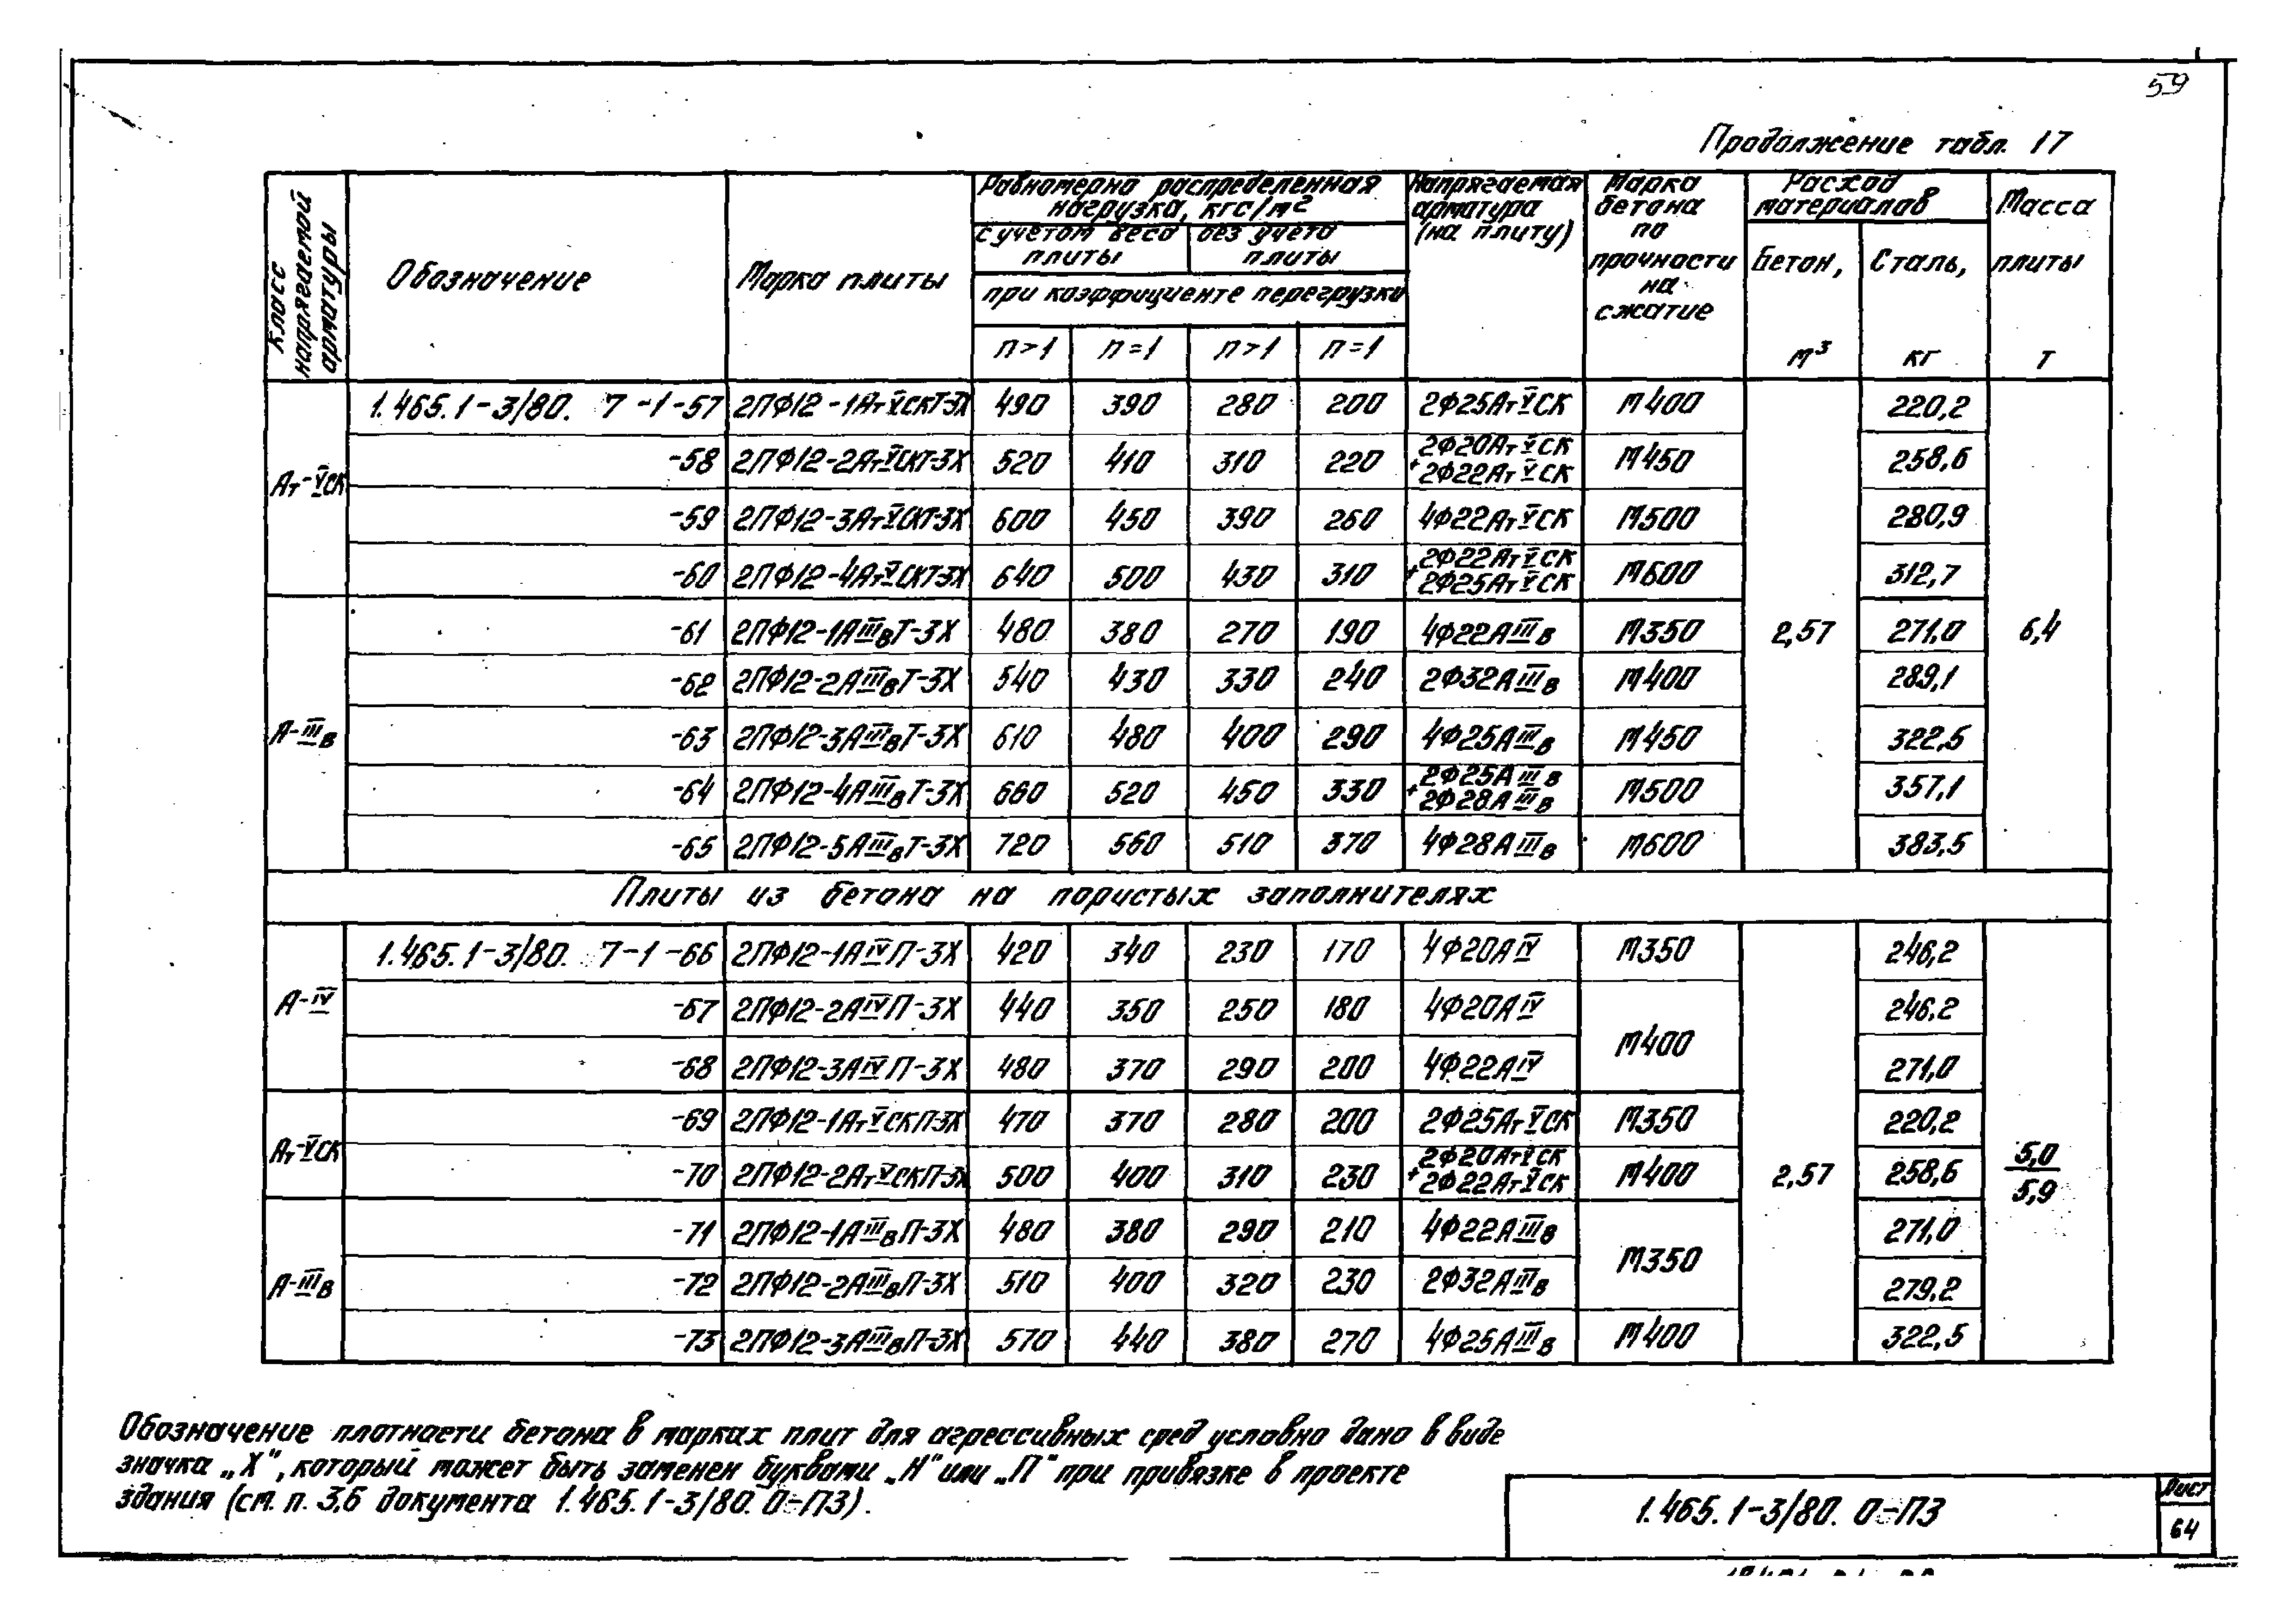 59
Продолжение табл. 17
Класс напрягаемой арматуры
Обозначение
Марка плиты
Равномерно распределенная нагрузка, кгс/м²
с учетом веса плиты
без учета плиты
при коэффициенте перегрузки
n>1 n=1 n>1 n=1
Напрягаемая арматура (на плиту)
Марка бетона по прочности на сжатие
Расход материалов
Бетон, м³
Сталь, кг
Масса плиты т
Ат-VСК
1.465.1-3/80. 7-1-57 2ПФ12-1АтVСКТ-3Х 490 390 280 200 2Ф25АтVСК М400 220,2
-58 2ПФ12-2АтVСКТ-3Х 520 410 310 220 2Ф20АтVСК +2Ф22АтVСК М450 258,6
-59 2ПФ12-3АтVСКТ-3Х 600 450 390 260 4Ф22АтVСК М500 280,9
-60 2ПФ12-4АтVСКТ-3Х 640 500 430 310 2Ф22АтVСК +2Ф25АтVСК М600 312,7
А-IIIв
-61 2ПФ12-1АIIIвТ-3Х 480 380 270 190 4Ф22АIIIв М350 2,57 271,0 6,4
-62 2ПФ12-2АIIIвТ-3Х 540 430 330 240 2Ф32АIIIв М400 289,1
-63 2ПФ12-3АIIIвТ-3Х 610 480 400 290 4Ф25АIIIв М450 322,5
-64 2ПФ12-4АIIIвТ-3Х 660 520 450 330 2Ф25АIIIв +2Ф28АIIIв М500 357,1
-65 2ПФ12-5АIIIвТ-3Х 720 560 510 370 4Ф28АIIIв М600 383,5
Плиты из бетона на пористых заполнителях
А-IV
1.465.1-3/80. 7-1-66 2ПФ12-1АIVП-3Х 420 340 230 170 4Ф20АIV М350 246,2
-67 2ПФ12-2АIVП-3Х 440 350 250 180 4Ф20АIV М400 246,2
-68 2ПФ12-3АIVП-3Х 480 370 290 200 4Ф22АIV 271,0
Ат-VСК
-69 2ПФ12-1АтVСКП-3Х 470 370 280 200 2Ф25АтVСК М350 220,2
-70 2ПФ12-2АтVСКП-3Х 500 400 310 230 2Ф20АтVСК +2Ф22АтVСК М400 2,57 258,6 5,0/5,9
А-IIIв
-71 2ПФ12-1АIIIвП-3Х 480 380 290 210 4Ф22АIIIв М350 271,0
-72 2ПФ12-2АIIIвП-3Х 510 400 320 230 2Ф32АIIIв 279,2
-73 2ПФ12-3АIIIвП-3Х 570 440 380 270 4Ф25АIIIв М400 322,5
Обозначение плотности бетона в марках плит для агрессивных сред условно дано в виде
значка „Х", который может быть заменен буквами „Н" или „П" при привязке в проекте
здания (см. п. 3,6 документа 1.465.1-3/80. 0-ПЗ).
1.465.1-3/80. 0-ПЗ
Лист
64